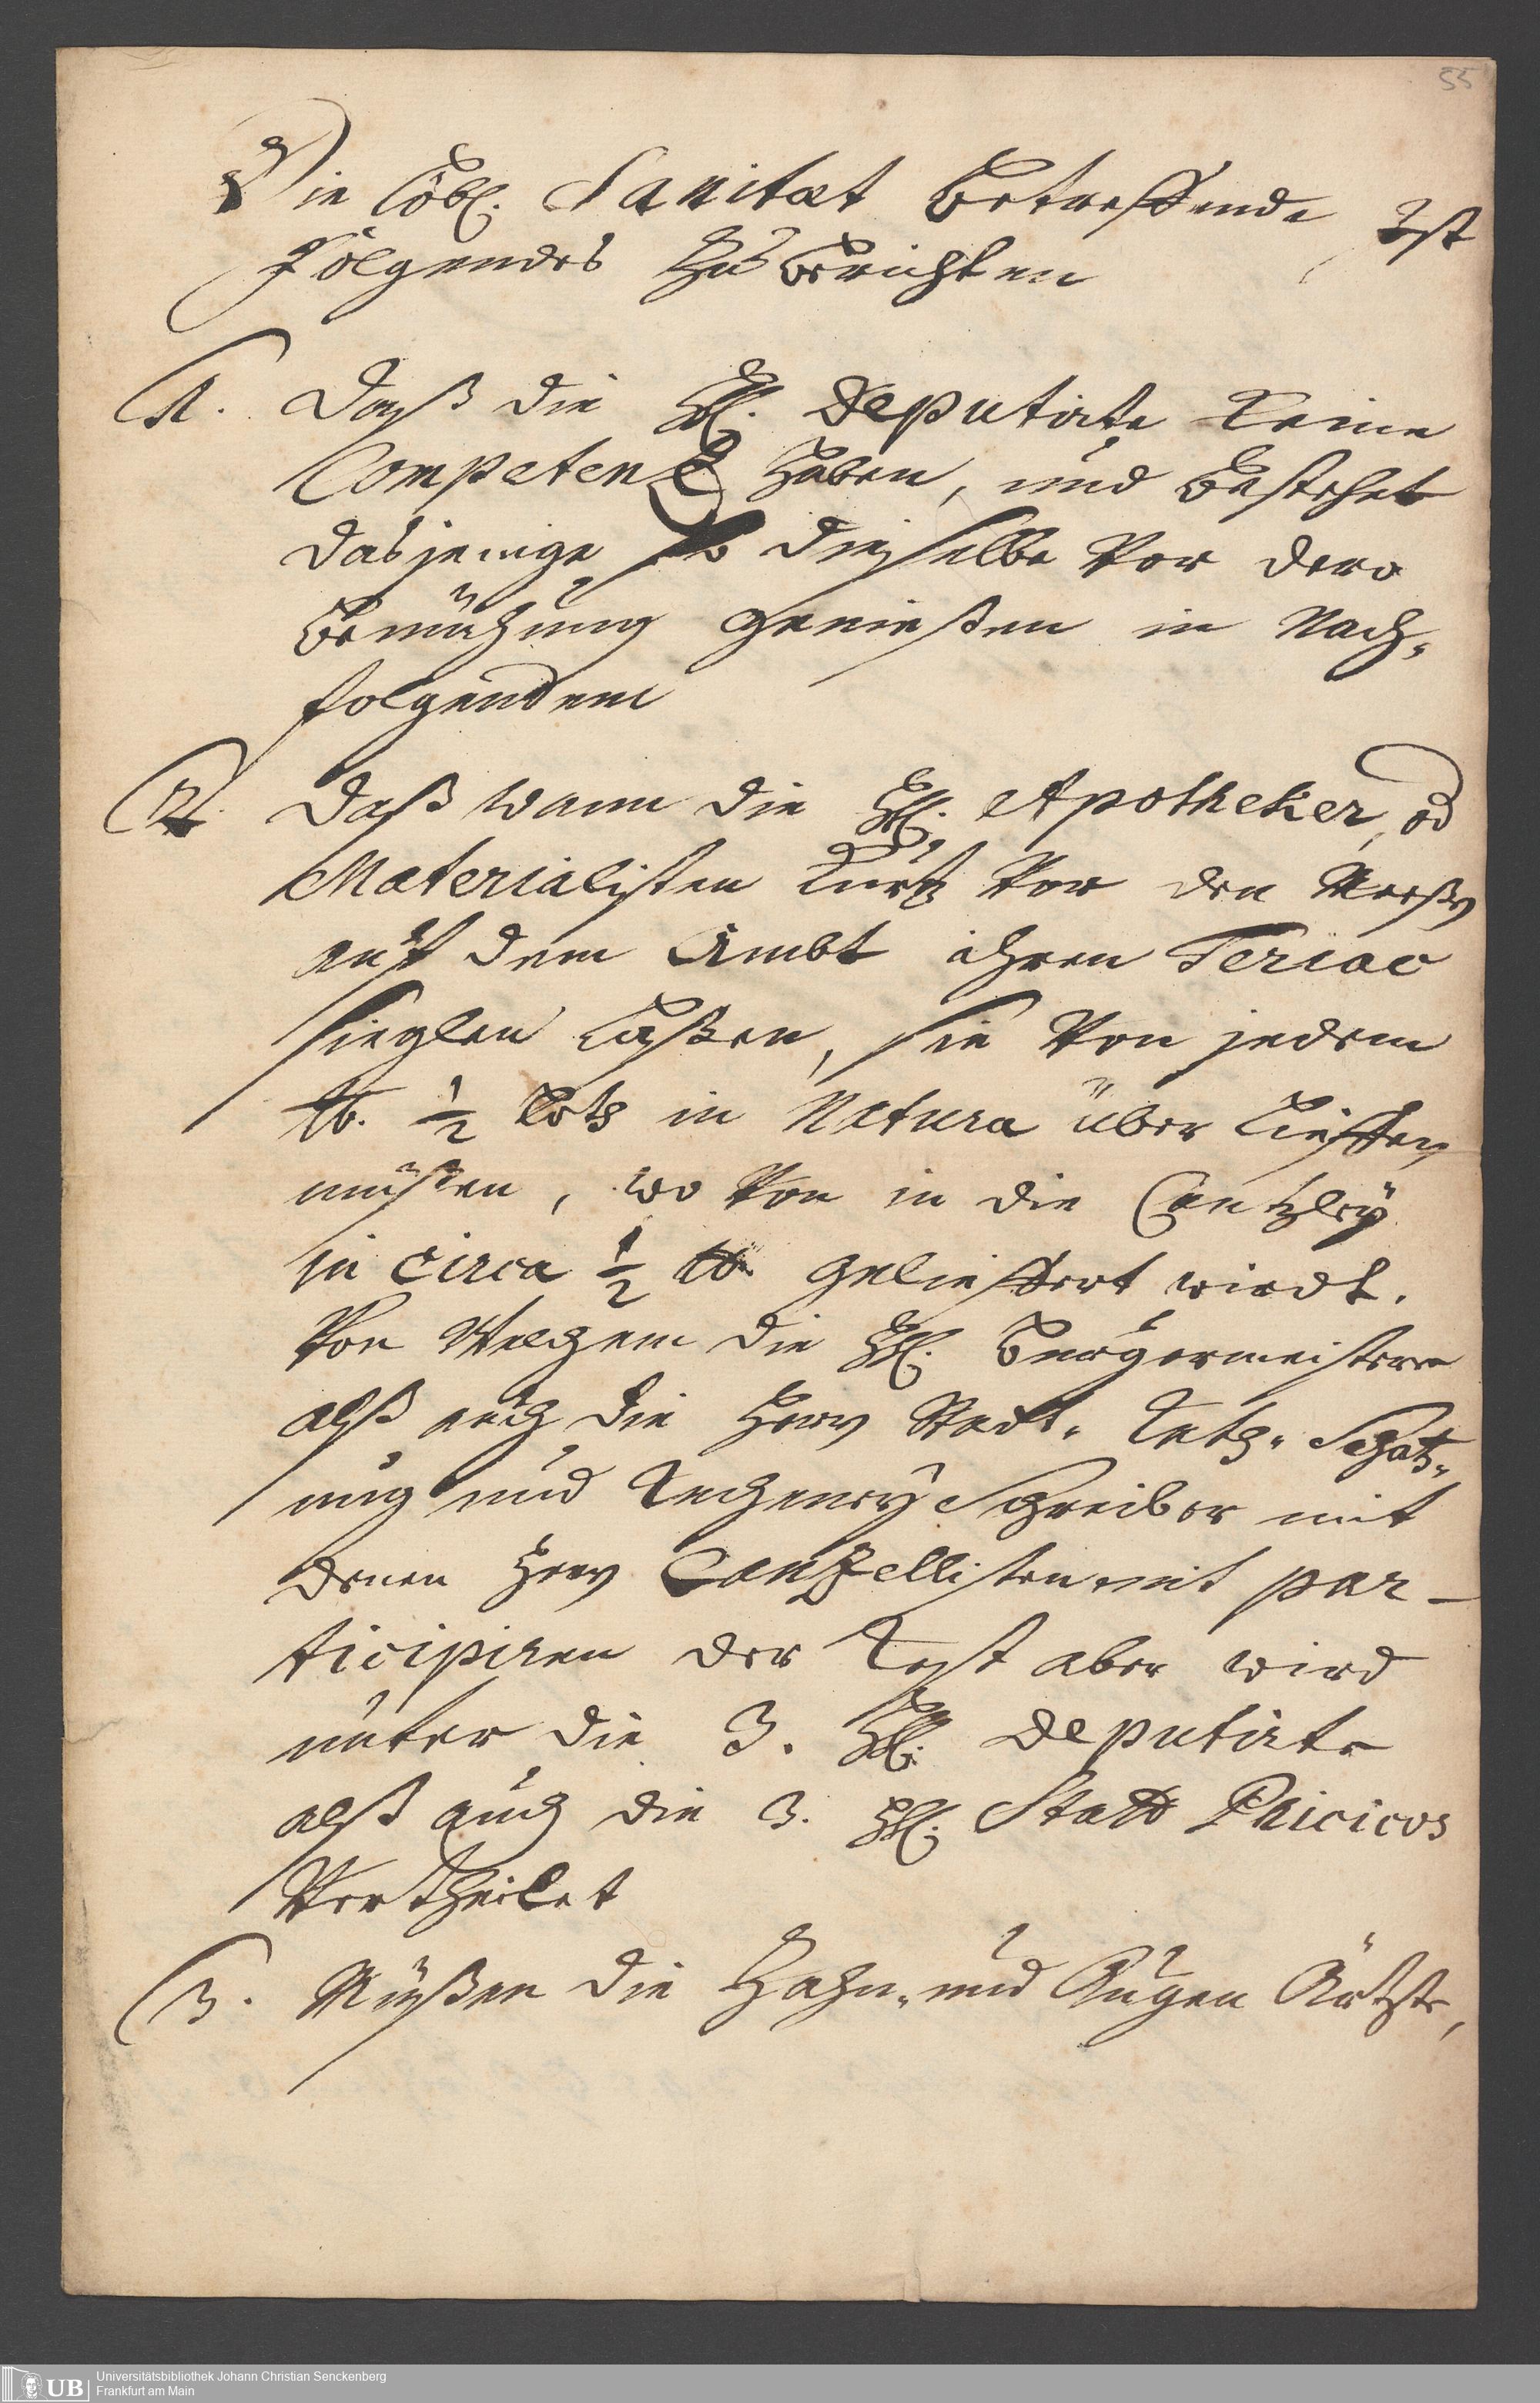 55
Die Löbl. Sanitæt Betreffende Ist
Folgendes zu Berichten
1. Daß die HH. Deputirte keine
Competenz haben, und Bestehet
dasjenige so dieselbe vor dero
Bemühung genießen in Nach-
folgendem
2. Daß wann die HH. Apotheker, od
Materialisten kurtz vor den Meeßen
auf dem Ambt ihren Teriac
sieglen laßen, sie von jedem
lb. ½ Loth in Natura über lieffern
müßen, wo von in die Cantzley
in circa ½ lb gelieffert wirdt.
Von Welchem die HH. Burgermeistere
alß auch die Herrn Stadt- Rath- Schatz-
ung und Rechney Schreiber mit
denen Herrn Canzellisten mit par-
ticipiren der Rest aber wird
unter die 3. HH. Deputirte
alß auch die 3. HH. Statt Phicicos
Vertheilet
3. Müßen die Zahn- und Augen Ärtzte,
UB Universitätsbibliothek Johann Christian Senckenberg
Frankfurt am Main